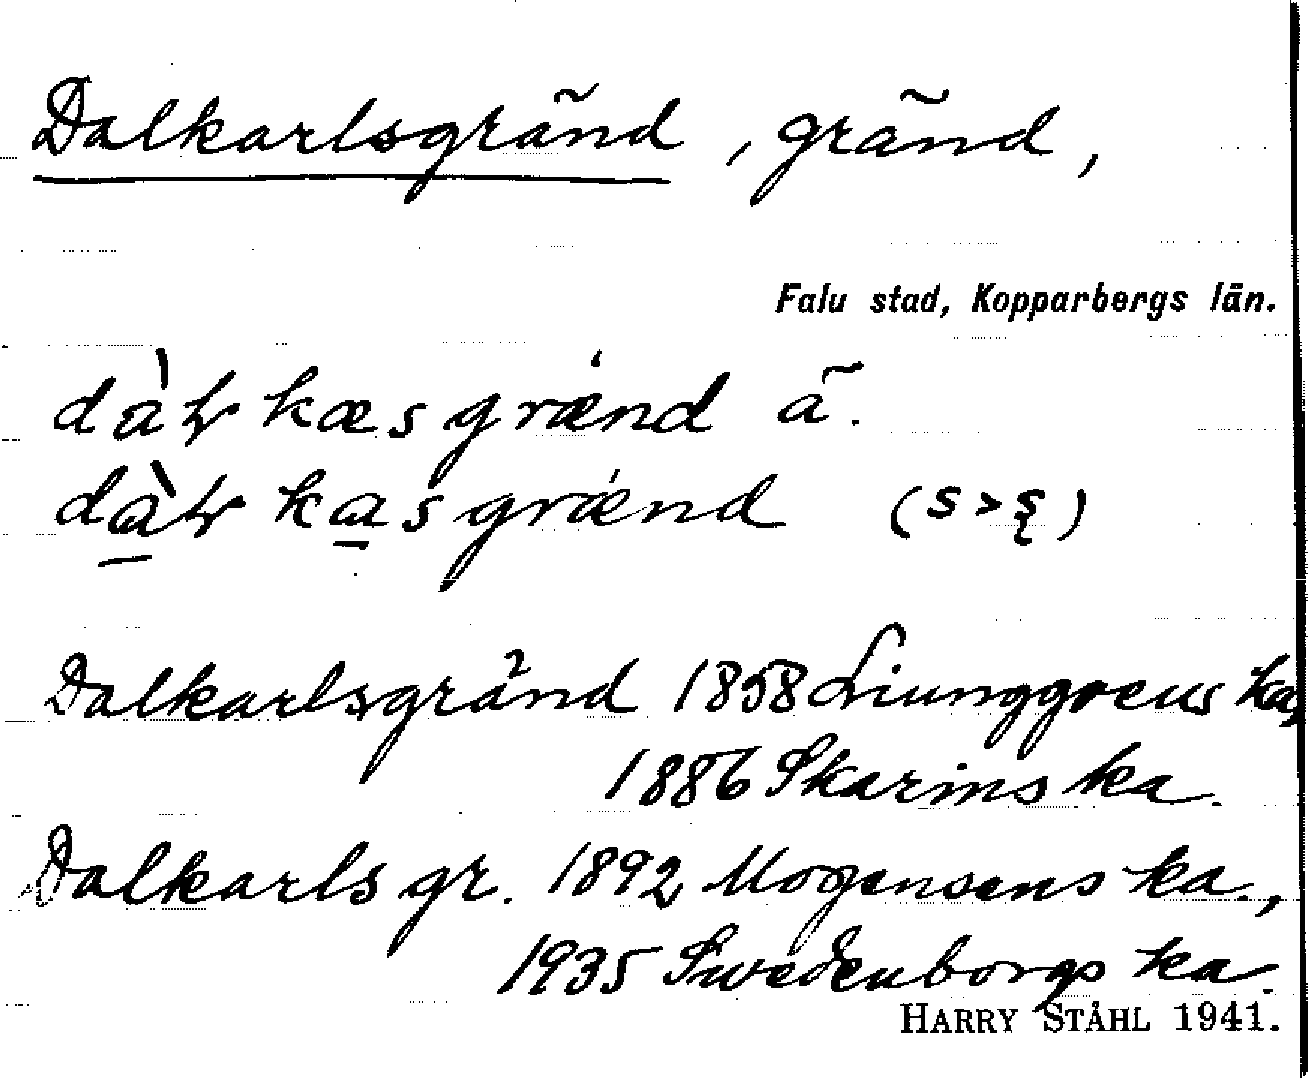 Dalkarlsgränd, gränd,
Falu stad, Kopparbergs län.
dàƚkæsgrænd ä.
dàƚkasgrænd (s>ʂ)
Dalkarlsgränd 1858 Liunggrens ka,
1886 Skarins ka.
Dalkarlsgr. 1892 Mogensens ka.,
1935 Swedenborgs ka.
HARRY STÅHL 1941.